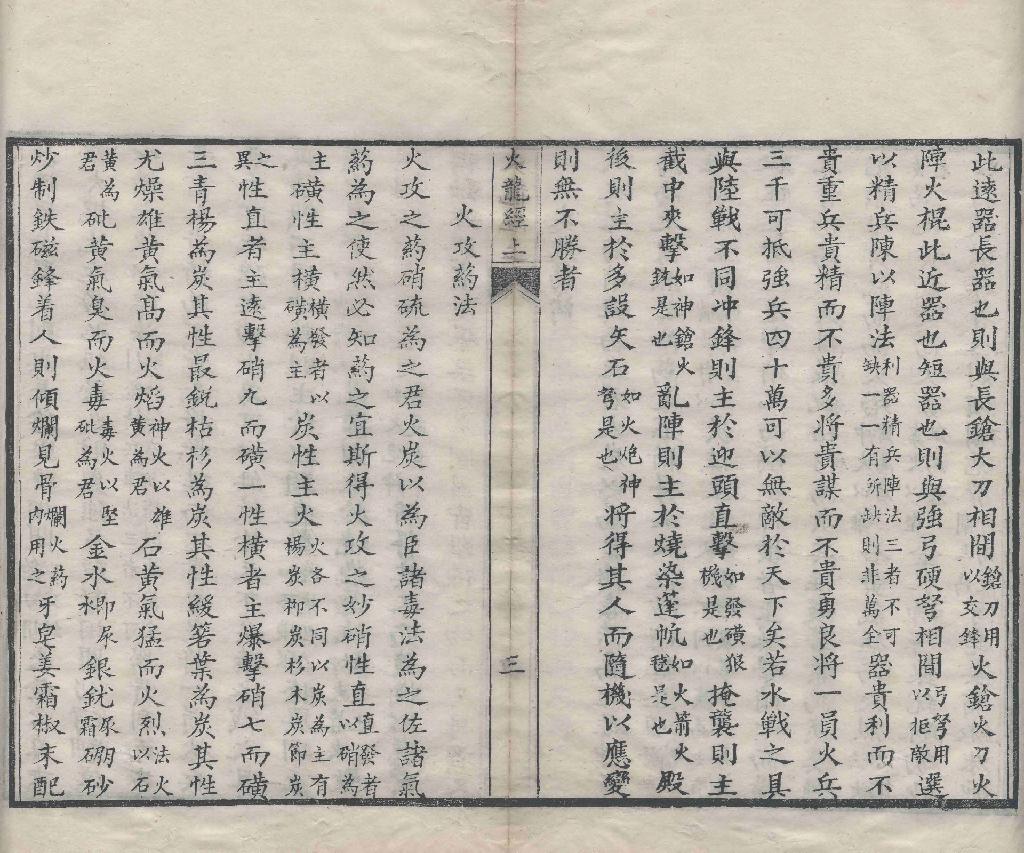 此遠器長器也則與長鎗大刀相間鎗刀用以交鋒火鎗火刀火
陣火棍此近器也短器也則與強弓硬弩相間弓弩用以拒敵選
以精兵陳以陣法利器精兵陣法三者不可缺一一有所缺則非萬全器貴利而不
貴重兵貴精而不貴多將貴謀而不貴勇良將一員火兵
三千可抵強兵四十萬可以無敵於天下矣若水戰之具
與陸戰不同冲鋒則主於迎頭直擊如發磺狠機是也掩襲則主
截中夾擊如神鎗火銃是也亂陣則主於燒染蓬帆如火箭火毬是也殿
後則主於多設矢石如火炮神弩是也將得其人而隨機以應變
則無不勝者
火龍經上
三
火攻葯法
火攻之葯硝硫為之君火炭以為臣諸毒法為之佐諸氣
葯為之使然必知葯之宜斯得火攻之妙硝性直直發者以硝為
主磺性主橫橫發者以磺為主炭性主火火各不同以炭為主有楊炭柳炭杉木炭節炭
之異性直者主遠擊硝九而磺一性橫者主爆擊硝七而磺
三青楊為炭其性最銳枯杉為炭其性緩箬葉為炭其性
尤燥雄黃氣高而火焰神火以雄黃為君石黃氣猛而火烈法火以石
黃為君砒黃氣臭而火毒毒火以砒為君金水即尿水銀銧尿霜硼砂
炒制鉄磁鋒着人則傾爛見骨爛火葯内用之牙皂姜霜椒末配